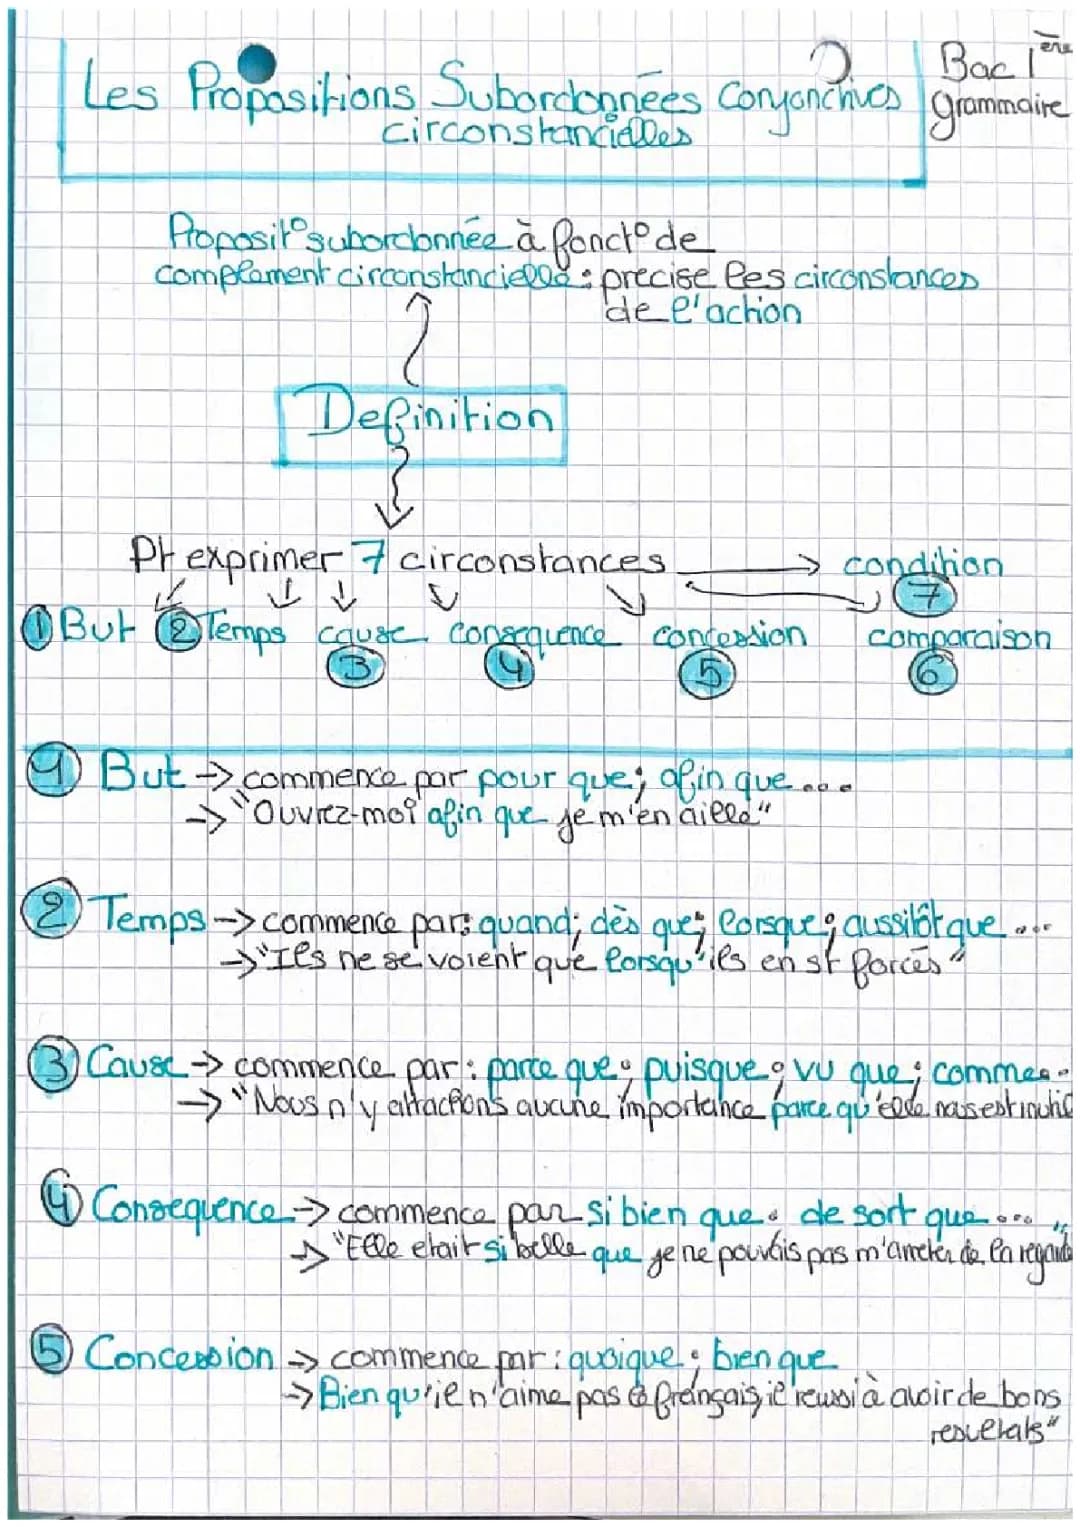 Les Propositions Subordonnées Conjonctives
circonstancielles
Bac 1ère
grammaire
Proposit° subordonnée à fonct° de
complément circonstancielle : precise les circonstances
de l'action
Definition
Pt exprimer 7 circonstances
condition
7
1 But 2 Temps cause consequence concession comparaison
3 4 5 6
1 But -> commence par pour que; afin que...
-> "Ouvrez-moi afin que je m'en aille"
2 Temps -> commence par: quand; dès que; lorsque; aussitôt que ...
-> "Ils ne se voient que lorsqu'ils en st forcés"
3 Cause -> commence par : parce que; puisque; vu que; comme..
-> "Nous n'y attachons aucune importance parce qu'elle nous est inutil
4 Consequence -> commence par si bien que. de sort que ...
-> "Elle etait si belle que je ne pouvais pas m'arreter de la regarde
5 Concession -> commence par : quoique; bien que
-> Bien qu'il n'aime pas le français, il reussi à avoir de bons
resultats"